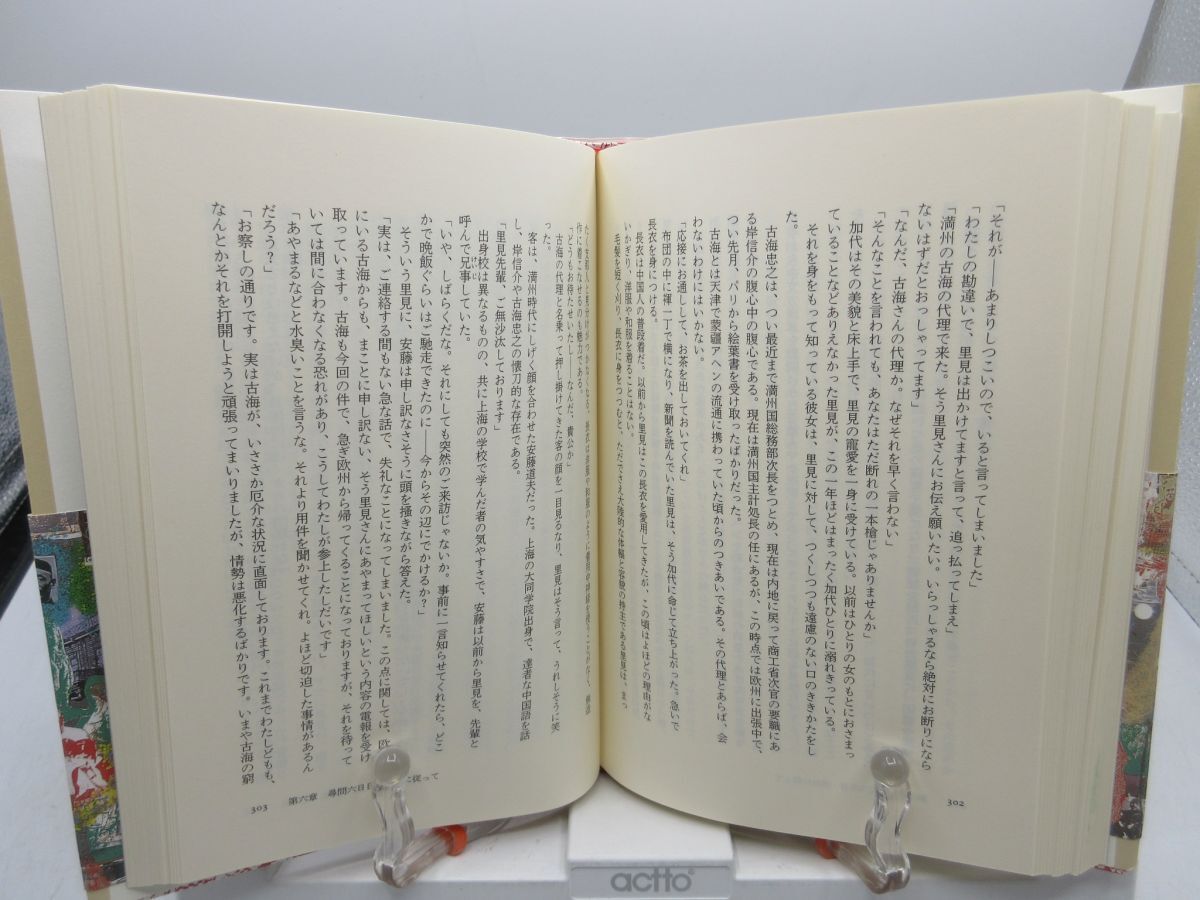 「それが――あまりしつこいので、いると言ってしまいました」
「わたしの勘違いで、里見は出かけてますと言って、追っ払ってしまえ」
「満州の古海の代理で来た。そう里見さんにお伝え願いたい。いらっしゃるなら絶対にお断りになら
ないはずだとおっしゃってます」
「なんだ、古海さんの代理か。なぜそれを早く言わない」
「そんなことを言われても、あなたはただ断れの一本槍じゃありませんか」
加代はその美貌と床上手で、里見の寵愛を一身に受けている。以前はひとりの女のもとにおさまっ
ていることなどありえなかった里見が、この一年ほどはまったく加代ひとりに溺れきっている。
それを身をもって知っている彼女は、里見に対して、つくしつつも遠慮のない口のききかたをし
た。
古海忠之は、つい最近まで満州国総務部次長をつとめ、現在は内地に戻って商工省次官の要職にあ
る岸信介の腹心中の腹心である。現在は満州国主計処長の任にあるが、この時点では欧州に出張中で、
つい先月、パリから絵葉書を受け取ったばかりだった。
古海とは天津で蒙疆アヘンの流通に携わっていた頃からのつきあいである。その代理とあらば、会
わないわけにはいかない。
「応接にお通しして、お茶を出しておいてくれ」
布団の中に褌一丁で横になり、新聞を読んでいた里見は、そう加代に命じて立ち上がった。急いで
長衣を身につける。
長衣は中国人の普段着だ。以前から里見はこの長衣を愛用してきたが、この頃はよほどの理由がな
いかぎり、洋服や和服を着ることはない。
毛髪を短く刈り、長衣に身をつつむと、ただでさえ大陸的な体軀と容貌の持主である里見は、まっ
302
作に着こなせるのも魅力である。
「どうもお待たせいたし――なんだ、貴公か」
古海の代理と名乗って押し掛けてきた客の顔を一目見るなり、里見はそう言って、うれしそうに笑
った。
客は、満州時代にしげく顔を合わせた安藤道夫だった。上海の大同学院出身で、達者な中国語を話
し、岸信介や古海忠之の懐刀的な存在である。
「里見先輩、ご無沙汰しております」
出身校は異なるものの、共に上海の学校で学んだ者の気やすさで、安藤は以前から里見を、先輩と
呼んで兄事していた。
「いや、しばらくだな。それにしても突然のご来訪じゃないか。事前に一言知らせてくれたら、どこ
かで晩飯ぐらいはご馳走できたのに――今からその辺にでかけるか?」
そういう里見に、安藤は申し訳なさそうに頭を掻きながら答えた。
「実は、ご連絡する間もない急な話で、失礼なことになってしまいました。この点に関しては、欧
にいる古海からも、まことに申し訳ない、そう里見さんにあやまってほしいという内容の電報を受け
取っています。古海も今回の件で、急ぎ欧州から帰ってくることになっておりますが、それを待って
いては間に合わなくなる恐れがあり、こうしてわたしが参上したしだいです」
「あやまるなどと水臭いことを言うな。それより用件を聞かせてくれ。よほど切迫した事情があるん
だろう?」
「お察しの通りです。実は古海が、いささか厄介な状況に直面しております。これまでわたしどもも、
なんとかそれを打開しようと頑張ってまいりましたが、情勢は悪化するばかりです。いまや古海の窮
303 第六章 尋問六日目 に従って
actto